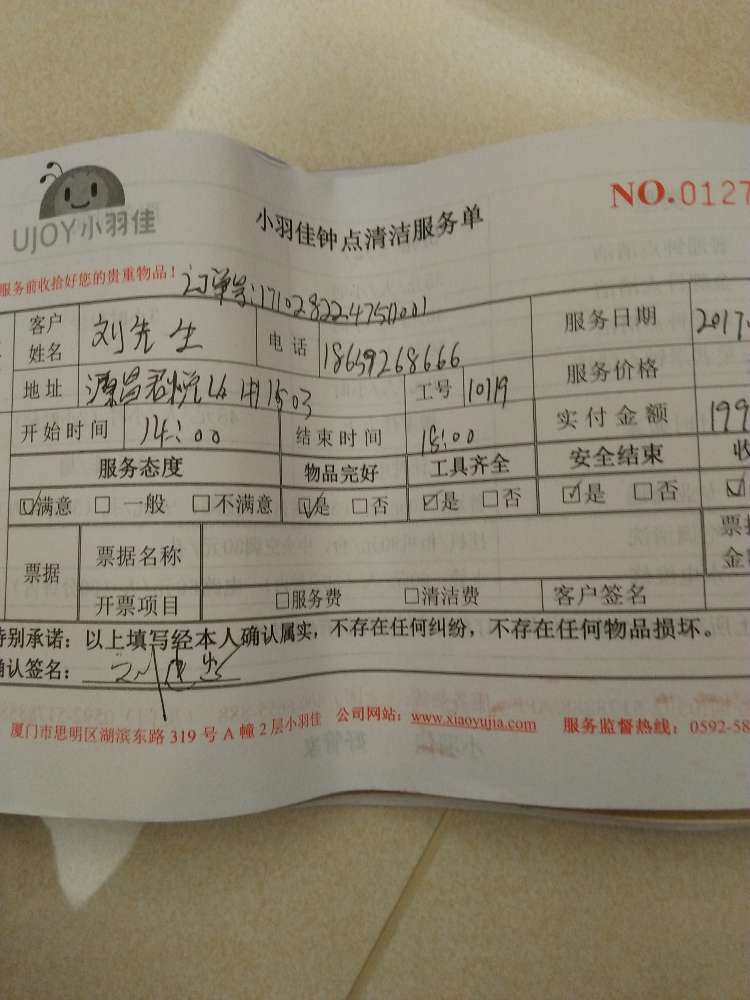 UJOY小羽佳
小羽佳钟点清洁服务单
NO.0127
服务前收拾好您的贵重物品!
订单号:
客户姓名 刘先生 电话 18659268666 服务日期 2017.
地址 源昌君悦 1503 工号 10119 服务价格
开始时间 14:00 结束时间 18:00 实付金额 199
服务态度 物品完好 工具齐全 安全结束 收
☑满意 □一般 □不满意 ☑是 □否 ☑是 □否 ☑是 □否 ☑
票据 票据名称 票 金
开票项目 □服务费 □清洁费 客户签名
特别承诺:以上填写经本人确认属实,不存在任何纠纷,不存在任何物品损坏。
确认签名:
厦门市思明区湖滨东路 319 号 A 幢 2 层小羽佳 公司网站:www.xiaoyujia.com 服务监督热线:0592-58